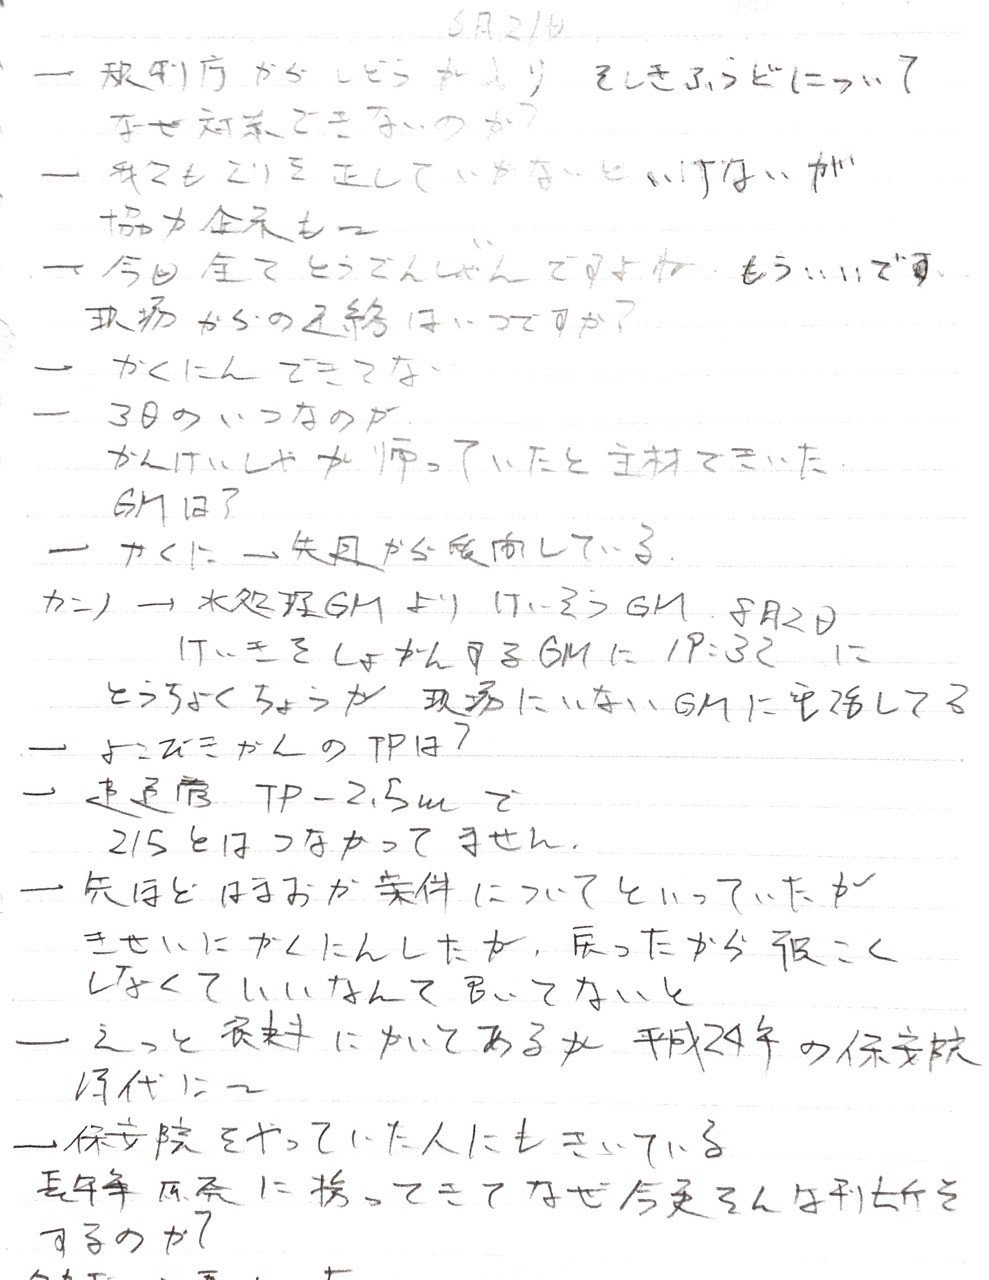 6月21日
一 規制庁からしどうがより そしきふうどについて
なぜ対策できないのか?
一 我々もどりを正していかないといけないが
協力企業も〜
一 今回 全て とうでんじゃんですよね もういいです
現場からの連絡はいつですか?
→ かくにんできてない
一 3日のいつなのか
かんけいしゃが帰っていたと主材できいた
GMは?
一 かくに → 先日から後向している。
カンノ → 水処理GMより けいそうGM 8月2日
けいきをしょかんするGMに 19:32 に
とうちょくちょうが 現場にいないGMに電話してる
一 よこびきかんのTPは?
→ 連通管 TP-2.5mで
215とはつながってません。
一 先ほどはまおか案件についてといっていたが
きせいにかくにんしたが、戻ったから報こく
しなくていいなんて言いてないと
一 えっと 資料にかいてあるが 平成24年の保安院
時代に〜
→ 保安院をやっていた人にもきいている
長年 原発に携ってきてなぜ今更そんな判断を
するのか?